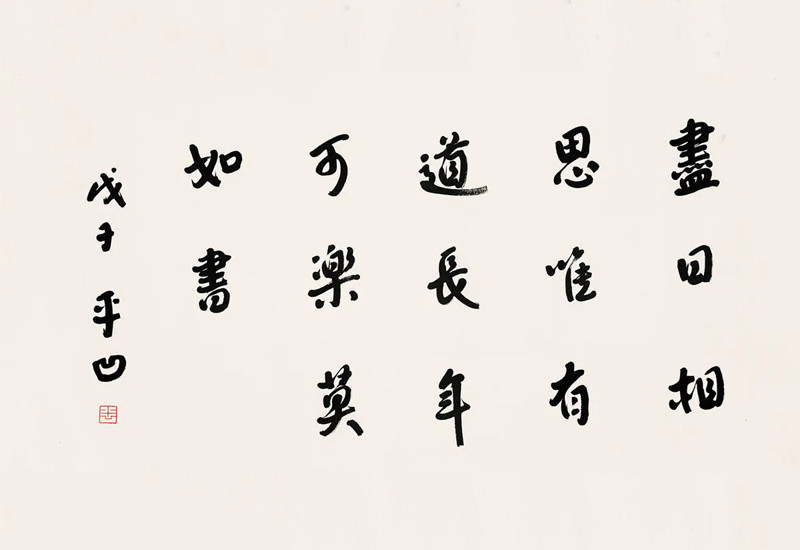 盡日相
思唯有
道長年
可樂莫
如書
戊子 平凹